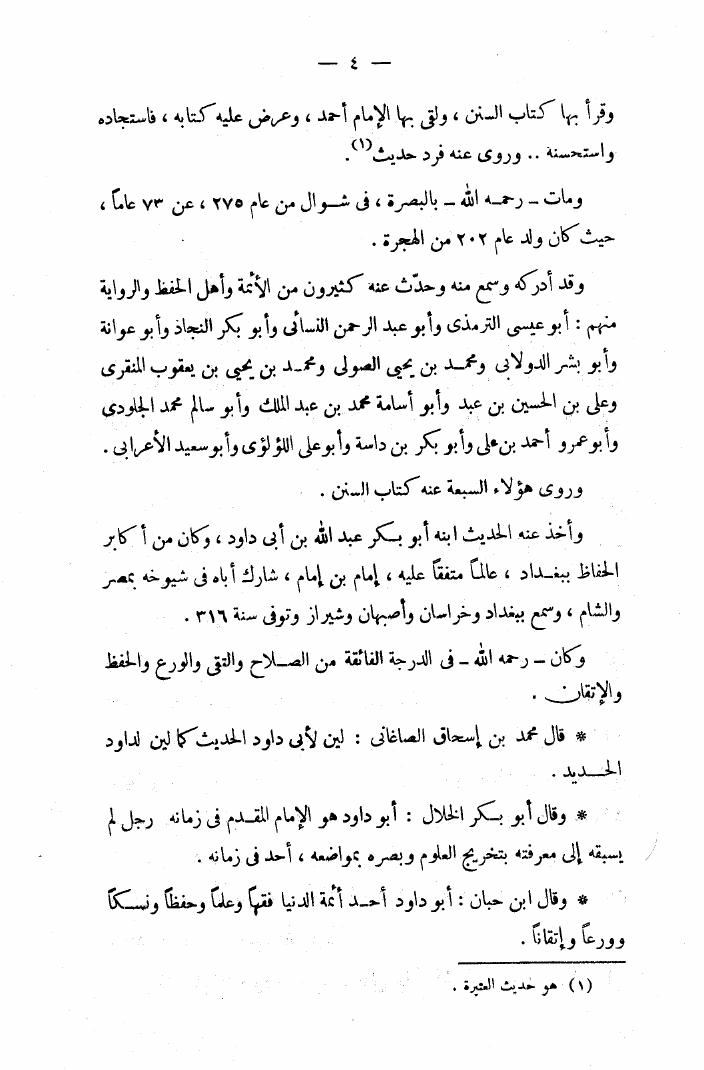 — ٤ —
وقرأ بها كتاب السنن ، ولقى بها الإمام أحمد ، وعرض عليه كتابه ، فاستجاده
واستحسنة .. وروى عنه فرد حديث(١).
ومات ـ رحمه الله ـ بالبصرة ، فى شوال من عام ٢٧٥ ، عن ٧٣ عاماً ،
حيث كان ولد عام ٢٠٢ من الهجرة .
وقد أدركه وسمع منه وحدّث عنه كثيرون من الأئمة وأهل الحفظ والرواية
منهم : أبو عيسى الترمذى وأبو عبد الرحمن النسائى وأبو بكر النجاذ وأبو عوانة
وأبو بشر الدولابى ومحمد بن يحيى الصولى ومحمد بن يحيى بن يعقوب المنقرى
وعلى بن الحسين بن عبد وأبو أسامة محمد بن عبد الملك وأبو سالم محمد الجلودى
وأبو عمرو أحمد بن على وأبو بكر بن داسة وأبو على اللؤلؤى وأبو سعيد الأعرابى .
وروى هؤلاء السبعة عنه كتاب السنن .
وأخذ عنه الحديث ابنه أبو بكر عبد الله بن أبى داود ، وكان من أكابر
الحفاظ ببغداد ، عالماً متفقاً عليه ، إمام بن إمام ، شارك أباه فى شيوخه بمصر
والشام ، وسمع ببغداد وخراسان وأصبهان وشيراز وتوفى سنة ٣١٦ .
وكان ـ رحمه الله ـ فى الدرجة الفائقة من الصلاح والتقى والورع والحفظ
والإتقان .
* قال محمد بن إسحاق الصاغانى : لين لأبى داود الحديث كما لين لداود
الحديد .
* وقال أبو بكر الخلال : أبو داود هو الإمام المقدم فى زمانه رجل لم
يسبقه إلى معرفته بتخريج العلوم وبصره بمواضعه ، أحد فى زمانه .
* وقال ابن حبان : أبو داود أحد أئمة الدنيا فقهاً وعلماً وحفظاً ونسكاً
وورعاً وإتقاناً .
(١) هو حديث العتيرة .